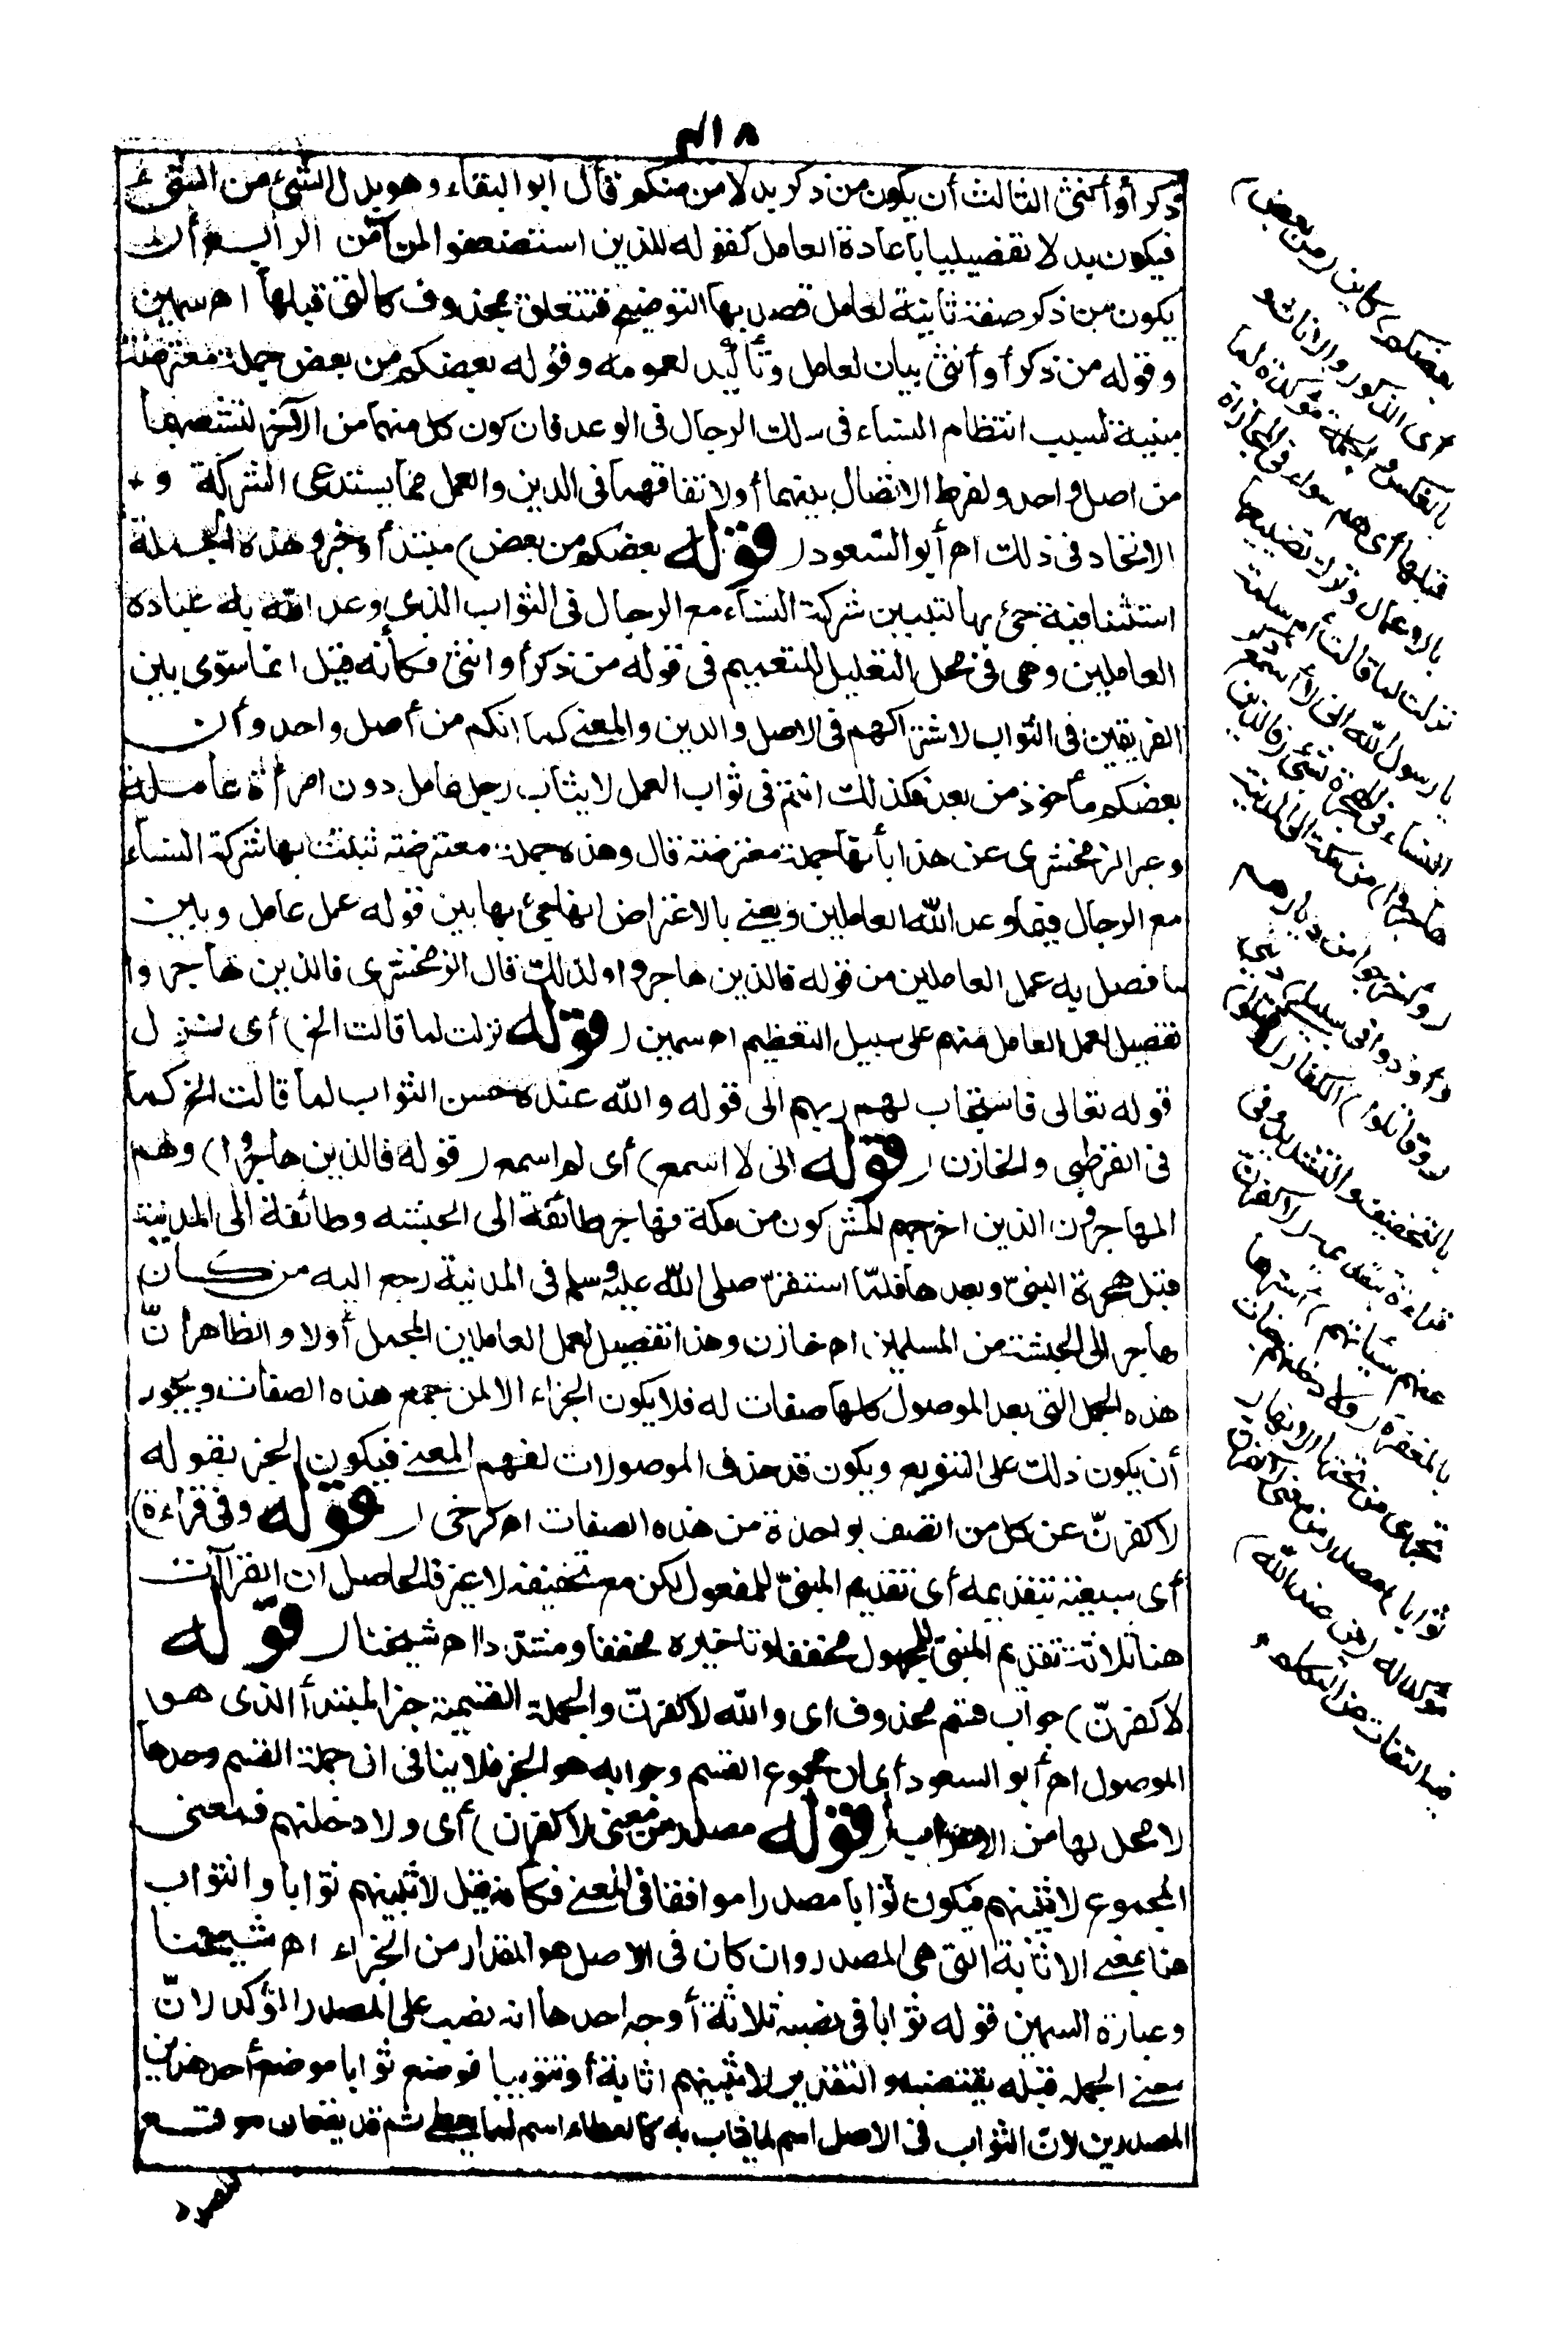 ٨ الم
ذكر أو أنثى الثالث أن يكون من ذكر بدلا من منكم قال ابو البقاء وهو بدل الشئ من الشئ
فيكون بدلا تفصيليا باعادة العامل كقوله للذين استضعفوا لمن آمن الرابع أن
يكون من ذكر صفة ثانية لعامل قصد بها التوضيح فتتعلق بمحذوف كالتى قبلها اه سمين
وقوله من ذكر أو أنثى بيان لعامل وتأكيد لعمومه وقوله بعضكم من بعض جملة معترضة
مبنية لسبب انتظام النساء فى سلك الرجال فى الوعد فان كون كل منهما من الآخر لتشعبهما
من اصل واحد ولفرط الاتصال بينهما أو لاتفاقهما فى الدين والعمل مما يستدعى الشركة و
الاتحاد فى ذلك اه أبو السعود ( قوله بعضكم من بعض) مبتدأ وخبر وهذه الجملة
استئنافية جئ بها لتبيين شركة النساء مع الرجال فى الثواب الذى وعد الله به عباده
العاملين وهى فى محل التعليل للتعميم فى قوله من ذكر أو انثى فكأنه قيل انما سوى بين
الفريقين فى الثواب لاشتراكهم فى الاصل والدين والمعنى كما انكم من أصل واحد وأن
بعضكم مأخوذ من بعض فكذلك انتم فى ثواب العمل لا يثاب رجل عامل دون امرأة عاملة
وعبر الزمخشرى عن هذا بأنها جملة معترضة قال وهذه جملة معترضة ثبتت بها شركة النساء
مع الرجال فيما وعد الله العاملين ويعنى بالاعتراض انها جئ بها بين قوله عمل عامل وبين
ما فصل به عمل العاملين من قوله فالذين هاجروا ولذلك قال الزمخشرى فالذين هاجروا
تفصيل لعمل العامل منهم على سبيل التعظيم اه سمين ( قوله نزلت لما قالت الخ) أى نزل
قوله تعالى فاستجاب لهم ربهم الى قوله والله عنده حسن الثواب لما قالت الخ كما
فى القرطبى والخازن ( قوله انى لا اسمع) أى لم اسمع ( قوله فالذين هاجروا) وهم
المهاجرون الذين اخرجهم المشركون من مكة فهاجر طائفة الى الحبشه وطائفة الى المدينة
قبل هجرة النبىّ وبعدها فلمّا استقرّ صلى الله عليه وسلم فى المدينة رجع اليه من كان
هاجر الى الحبشة من المسلمين اه خازن وهذا تفصيل لعمل العاملين المجمل أولا والظاهر أنّ
هذه الجمل التى بعد الموصول كلها صفات له فلا يكون الجزاء الا لمن جمع هذه الصفات ويجوز
أن يكون ذلك على التنويع ويكون قد حذف الموصولات لفهم المعنى فيكون الخبر بقوله
لاكفرنّ عن كل من اتصف بواحدة من هذه الصفات اه كرخى ( قوله وفى قراءة)
أى سبعية بتقديمه أى تقديم المبنىّ للمفعول لكن مع تخفيفه لا غير فالحاصل ان القراآت
هنا ثلاثة تقديم المبنىّ للمجهول مخففا وتاخيره مخففا ومشددا اه شيخنا ( قوله
لاكفرنّ) جواب قسم محذوف اى والله لاكفرنّ والجملة القسمية خبر المبتدأ الذى هو
الموصول اه أبو السعود أى لان مجموع القسم وجوابه هو الخبر فلا ينافى ان جملة القسم وحدها
لا محل لها من الاعراب ( قوله مصدر من معنى لاكفرن) أى ولادخلنهم فمعنى
المجموع لاثيبنهم فيكون ثوابا مصدرا موافقا فى المعنى فكأنه قيل لاثيبنهم ثوابا والثواب
هنا بمعنى الاثابة التى هى المصدر وان كان فى الاصل هو المقدار من الجزاء اه شيخنا
وعبارة السمين قوله ثوابا فى نصبه ثلاثة أوجه احدها انه نصب على المصدر المؤكد لانّ
معنى الجمله قبله يقتضيه والتقدير لاثيبنهم اثابة أو تثويبا فوضع ثوابا موضع أحد هذين
المصدرين لانّ الثواب فى الاصل اسم لما يثاب به كالعطاء اسم لما يعطى ثم قد يقعان موقع
بعضكم) كاين (من بعض)
أى الذكور والاناث و
بالعكس والجملة مؤكدة لما
قبلها أى هم سواء فى المجازاة
بالاعمال وترك تضييعها
نزلت لما قالت أم سلمة
يا رسول الله انى لا أسمع ذكر
النساء فى الهجرة بشئ (فالذين
هاجروا) من مكة الى المدينة
(وأخرجوا من ديارهم
وأوذوا فى سبيلى) دينى
(وقاتلوا) الكفار (وقتلوا)
بالتخفيف والتشديد وفى
قراءة بتقديمه (لأكفرنّ
عنهم سيئاتهم) أسترها
بالمغفرة (ولادخلنهم جنات
تجرى من تحتها الانهار
ثوابا) مصدر من معنى لاكفرن
مؤكد له (من عند الله)
فيه التفات عن التكلم